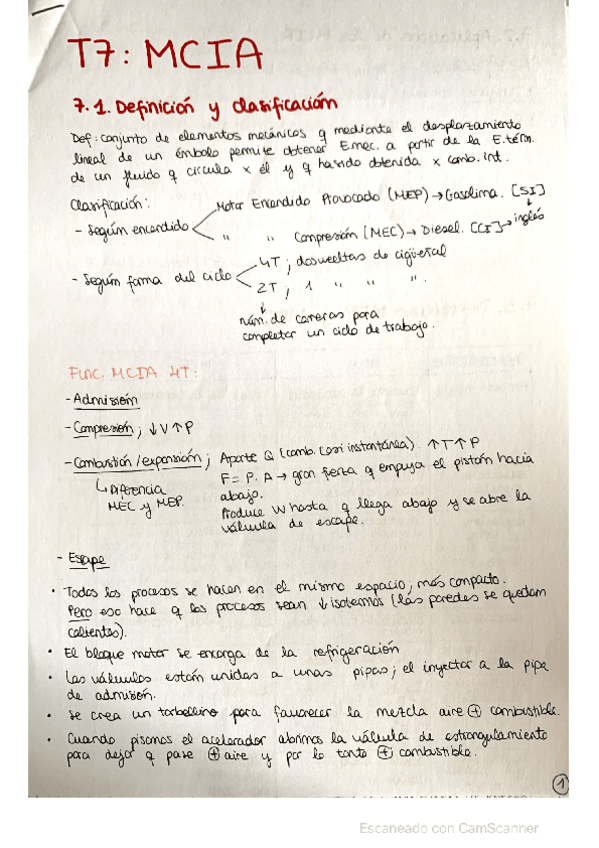 T7: MCIA
7.1. Definición y clasificación
Def: conjunto de elementos mecánicos q mediante el desplazamiento
lineal de un émbolo permite obtener Emec. a partir de la E.térm.
de un fluido q circula x él y q ha sido obtenida x comb. int.
Clasificación:
- Según encendido
Motor Encendido Provocado (MEP) → Gasolina. [SI]
" " Compresión (MEC) → Diesel. [CI] → inglés
- Según forma del ciclo
4T ; dos vueltas de cigüeñal
2T ; 1 " " ".
↓
núm. de carreras para
completar un ciclo de trabajo.
FUNC. MCIA 4T:
- Admisión
- Compresión ; ↓V ↑P
- Combustión/expansión ; Aporte Q (comb. casi instantánea). ↑T ↑P
↳ Diferencia
MEC y MEP.
F = P. A → gran fuerza q empuja el pistón hacia
abajo.
Produce W hasta q llega abajo y se abre la
válvula de escape.
- Escape
· Todos los procesos se hacen en el mismo espacio; más compacto.
Pero eso hace q los procesos sean ↓isotermos (las paredes se quedan
calientes).
· El bloque motor se encarga de la refrigeración
· Las válvulas están unidas a unas pipas; el inyector a la pipa
de admisión.
· Se crea un torbellino para favorecer la mezcla aire ⊕ combustible.
· Cuando pisamos el acelerador abrimos la válvula de estrangulamiento
para dejar q pase ⊕ aire y por lo tanto ⊕ combustible.
1
Escaneado con CamScanner